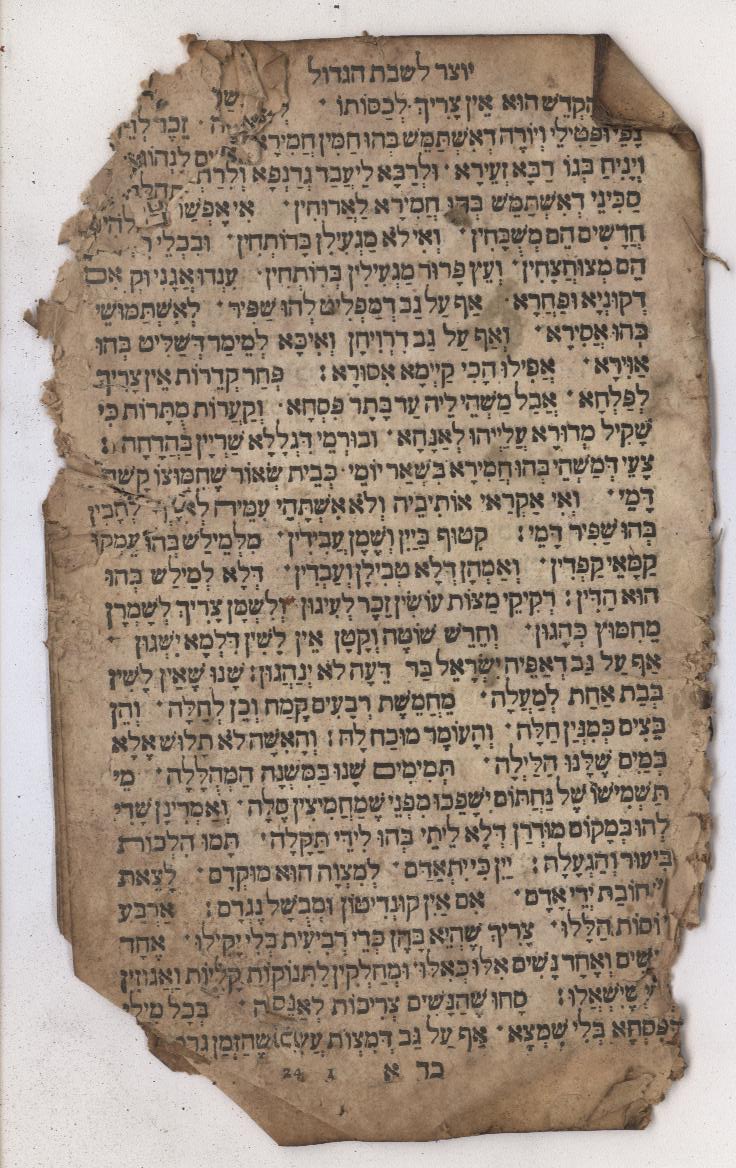 יוצר לשבת הגדול
הֶקְדֵשׁ הוּא אֵין צָרִיךְ לְכַסּוֹתוֹ ׳
וּפַטִילֵי וְיוֹרָה דְאִשְׁתַּמֵּשׁ בְּהוּ חַמִּין חֲמִירָא
וְיָנִיחַ בְּגוֹ רַבָּא זְעֵירָא ׳ וּלְרַבָּא לִיעֲבַד גְדַנְפָא וְלִרְתַּח
סַכִּינֵי דְאִשְׁתַּמֵּשׁ בְּהוּ חֲמִירָא לַאֲרוּחִין ׳ אִי אָפְשׁוּ
חֲדָשִׁים הֵם מְשֻׁבָּחִין ׳ וְאִי לֹא מַגְעִילָן בְּרוֹתְחִין ׳ וּבִכְלֵי
הֵם מְצוּחְצָחִין ׳ וְעֵץ פָּרוּר מַגְעִילִין בְּרוֹתְחִין ׳ עִנְדוּ אֲגָנֵי וּק אִם
דְקוּנְיָא וּפַחֲרָא ׳ אַף עַל גַב דְמַפְלִיט לְהוּ שַׁפִּיר ׳ לְאִשְׁתַּמּוּשֵׁי
בְּהוּ אֲסִירָא ׳ וְאַף עַל גַב דִרְוִיחָן וְאִיכָּא לְמֵימַר דְשַׁלִיט בְּהוּ
אֲוִירָא ׳ אֲפִילוּ הָכִי קַיְימָא אִסּוּרָא : פְּחַר קְדֵרוֹת אֵין צָרִיךְ
לְפַלְחָא ׳ אֲבָל מַשְׁהֵי לֵיהּ עַד בָּתַר פִּסְחָא ׳ וּקְעָרוֹת מֻתָּרוֹת כִּי
שָׁקִיל מְדוּרָא עֲלַיְיהוּ לְאַנָחָא ׳ וּבוּרְמֵי דִגְלָלָא שַׁרְיָין בַּהֲדָחָה :
צָעֵי דְמַשְׁהֵי בְּהוּ חֲמִירָא בִּשְׁאָר יוֹמֵי ׳ כְּבֵית שְׂאוֹר שֶׁחִמּוּצוֹ קָשֶׁה
דָּמֵי ׳ וְאִי אַקְרַאי אוֹתִיבֵיהּ וְלֹא אִשְׁתָּהֵי
בְּהוּ שַׁפִּיר דָּמֵי : קָטוּף בְּיַיִן וְשֶׁמֶן עָבִידִין ׳ מִלְמֵילַשׁ בְּהוּ עָמְקוּ
קַמָּאֵי קַפְדִין ׳ וְאַמְהָן דְלָא טְבִילָן וְעַבְדִין ׳ דְּלָא לְמֵילַשׁ בְּהוּ
הוּא הַדִּין : רְקִיקֵי מַצּוֹת עוֹשִׂין זֵכֶר לְעִיגוּן ׳ וְלִשְׁמָן צָרִיךְ לְשָׁמְרָן
מֵחִמּוּץ כְּהָגוּן ׳ וְחֵרֵשׁ שׁוֹטֶה וְקָטָן אֵין לָשִׁין דִּלְמָא יִשְׁגוּן ׳
אַף עַל גַּב דְּאַפִיֵּיהּ יִשְׂרָאֵל בַּר דֵּעָה לֹא יִנְהֲגוּן : שָׁנוּ שֶׁאֵין לָשִׁין
בְּבַת אַחַת לְמַעְלָה ׳ מֵחֲמֵשֶׁת רְבָעִים קֶמַח וְכֵן לְחַלָּה ׳ וְהֵן
בֵּצִים כְּמִנְיַן חַלָּה ׳ וְהָעוֹמֶר מוֹכַח לָהּ : וְהָאִשָּׁה לֹא תָלוּשׁ אֶלָּא
בְּמַיִם שֶׁלָּנוּ הַלַּיְלָה ׳ תְּמִימִים שָׁנוּ בַּמִּשְׁנָה הַמְּהֻלָּלָה ׳ מֵי
תַשְׁמִישׁוֹ שֶׁל נַחְתּוֹם יִשָּׁפְכוּ מִפְּנֵי שֶׁמַּחֲמִיצִין סָלָה ׳ וְאַמְרִינַן שָׁדֵי
לְהוּ בְּמָקוֹם מוּדְרָן דְּלָא לֵיתֵי בְּהוּ לִידֵי תַקָּלָה ׳ תַּמּוּ הִלְכוֹת
בִּיעוּר וְהַגְעָלָה : יַיִן כִּי יִתְאַדָּם ׳ לְמִצְוָה הוּא מוּקְדָּם ׳ לָצֵאת
יְדֵי חוֹבַת יְדֵי אָדָם ׳ אִם אֵין קוּנְדִיטוֹן וּמְבֻשָּׁל נֶגְדָּם : אַרְבַּע
כּוֹסוֹת הַלָּלוּ ׳ צָרִיךְ שֶׁיְּהֵא בָּהֶן כְּדֵי רְבִיעִית בְּלִי יָקֵילוּ ׳ אֶחָד
אֲנָשִׁים וְאֶחָד נָשִׁים אֵלּוּ כְּאֵלּוּ ׳ וּמְחַלְּקִין לַתִּנוֹקוֹת קְלָיוֹת וֶאֱגוֹזִין
שֶׁיִּשְׁאֲלוּ : סָחוּ שֶׁהַנָּשִׁים צְרִיכוֹת ׳ בְּכָל מִילֵי
דְּפִסְחָא בְּלִי שִׁמְצָא ׳ אַף עַל גַּב דְּמִצְוֹת עֲשֵׂה שֶׁהַזְּמַן גְּרָמָא
כד א 1 24